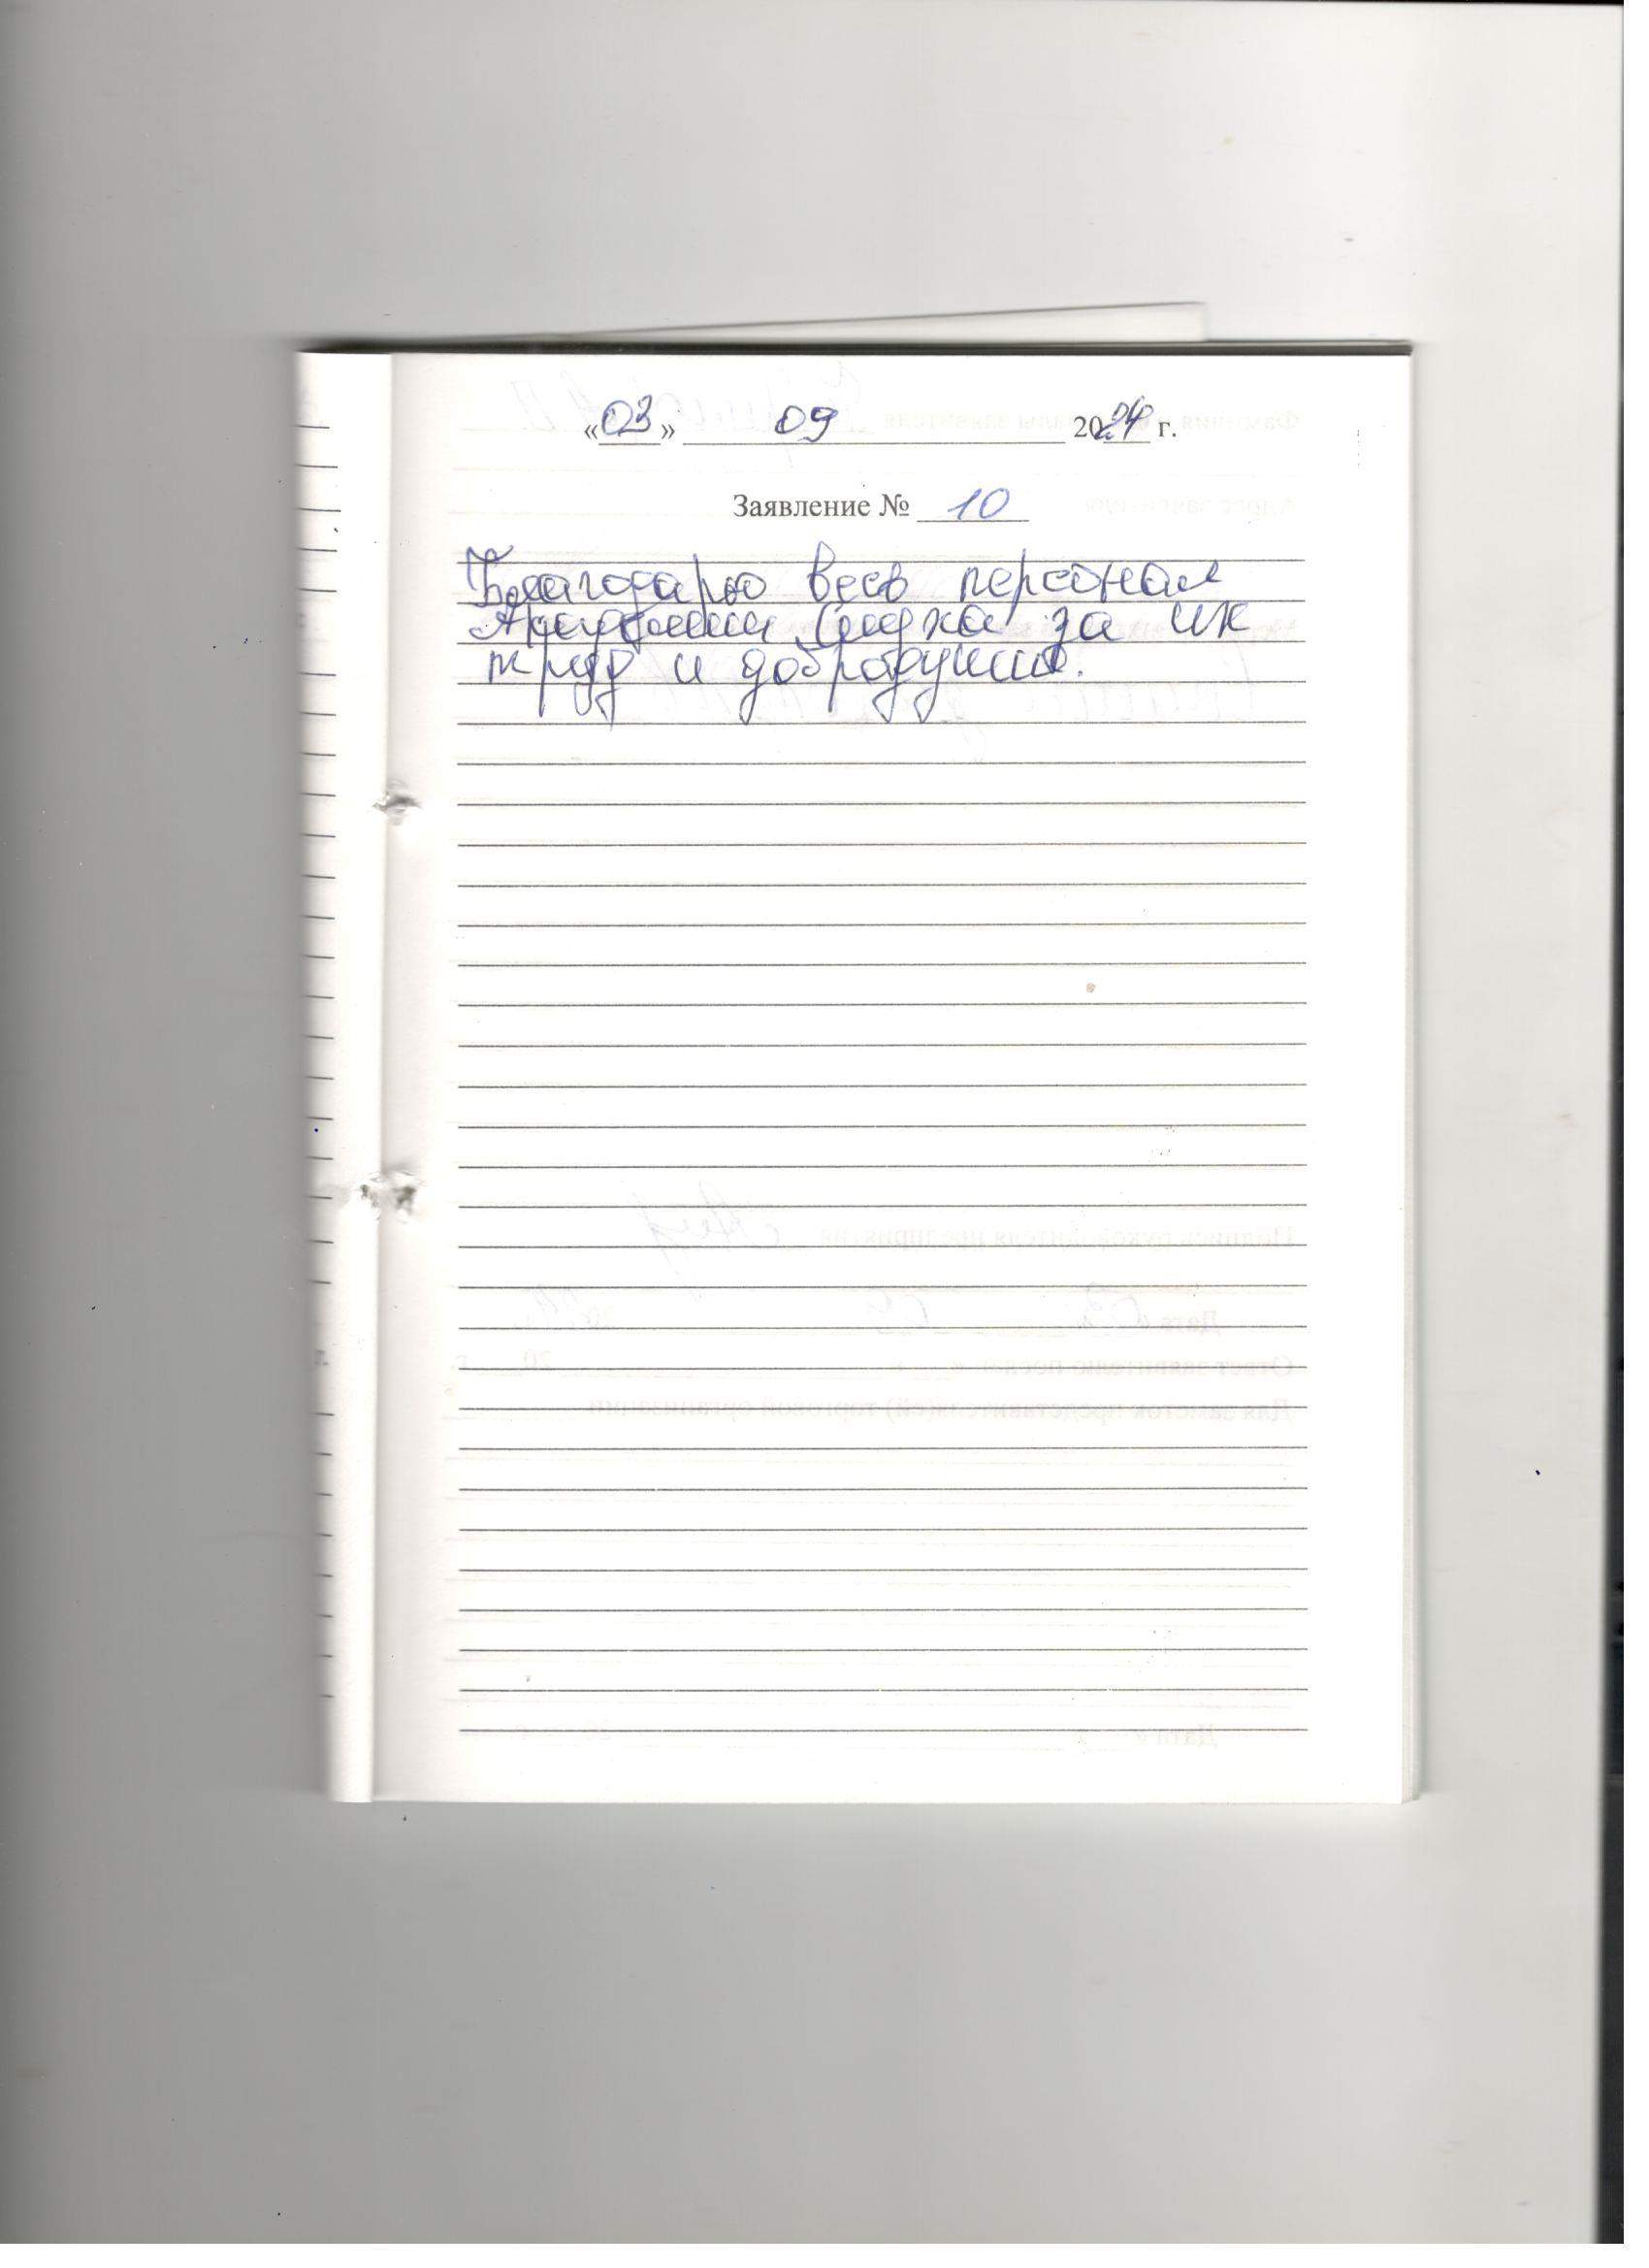 «03» 09 2024 г.
Заявление № 10
Благодарю весь персонал
за их
труд и добродушие.